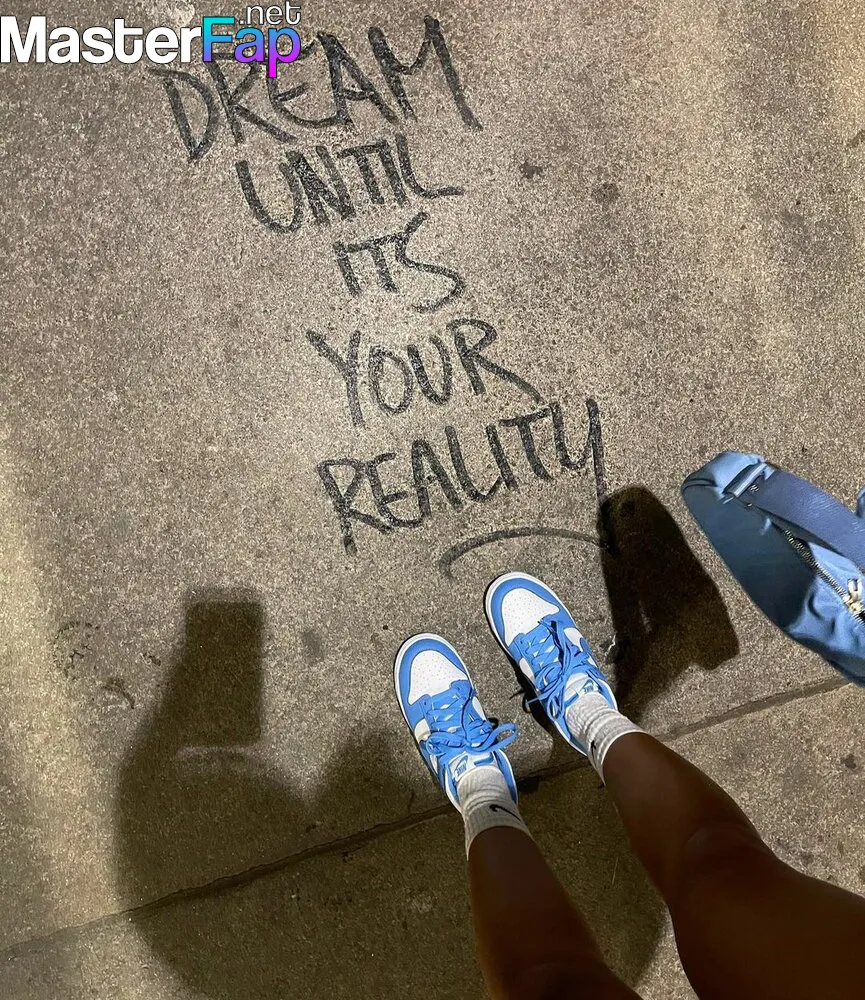 .net
MasterFap
DREAM
UNTIL
ITS
YOUR
REALITY